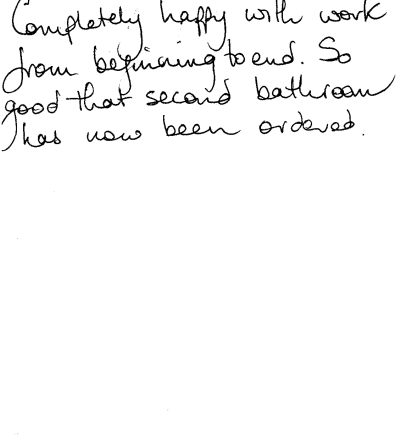 Completely happy with work
from beginning to end. So
good that second bathroom
has now been ordered.